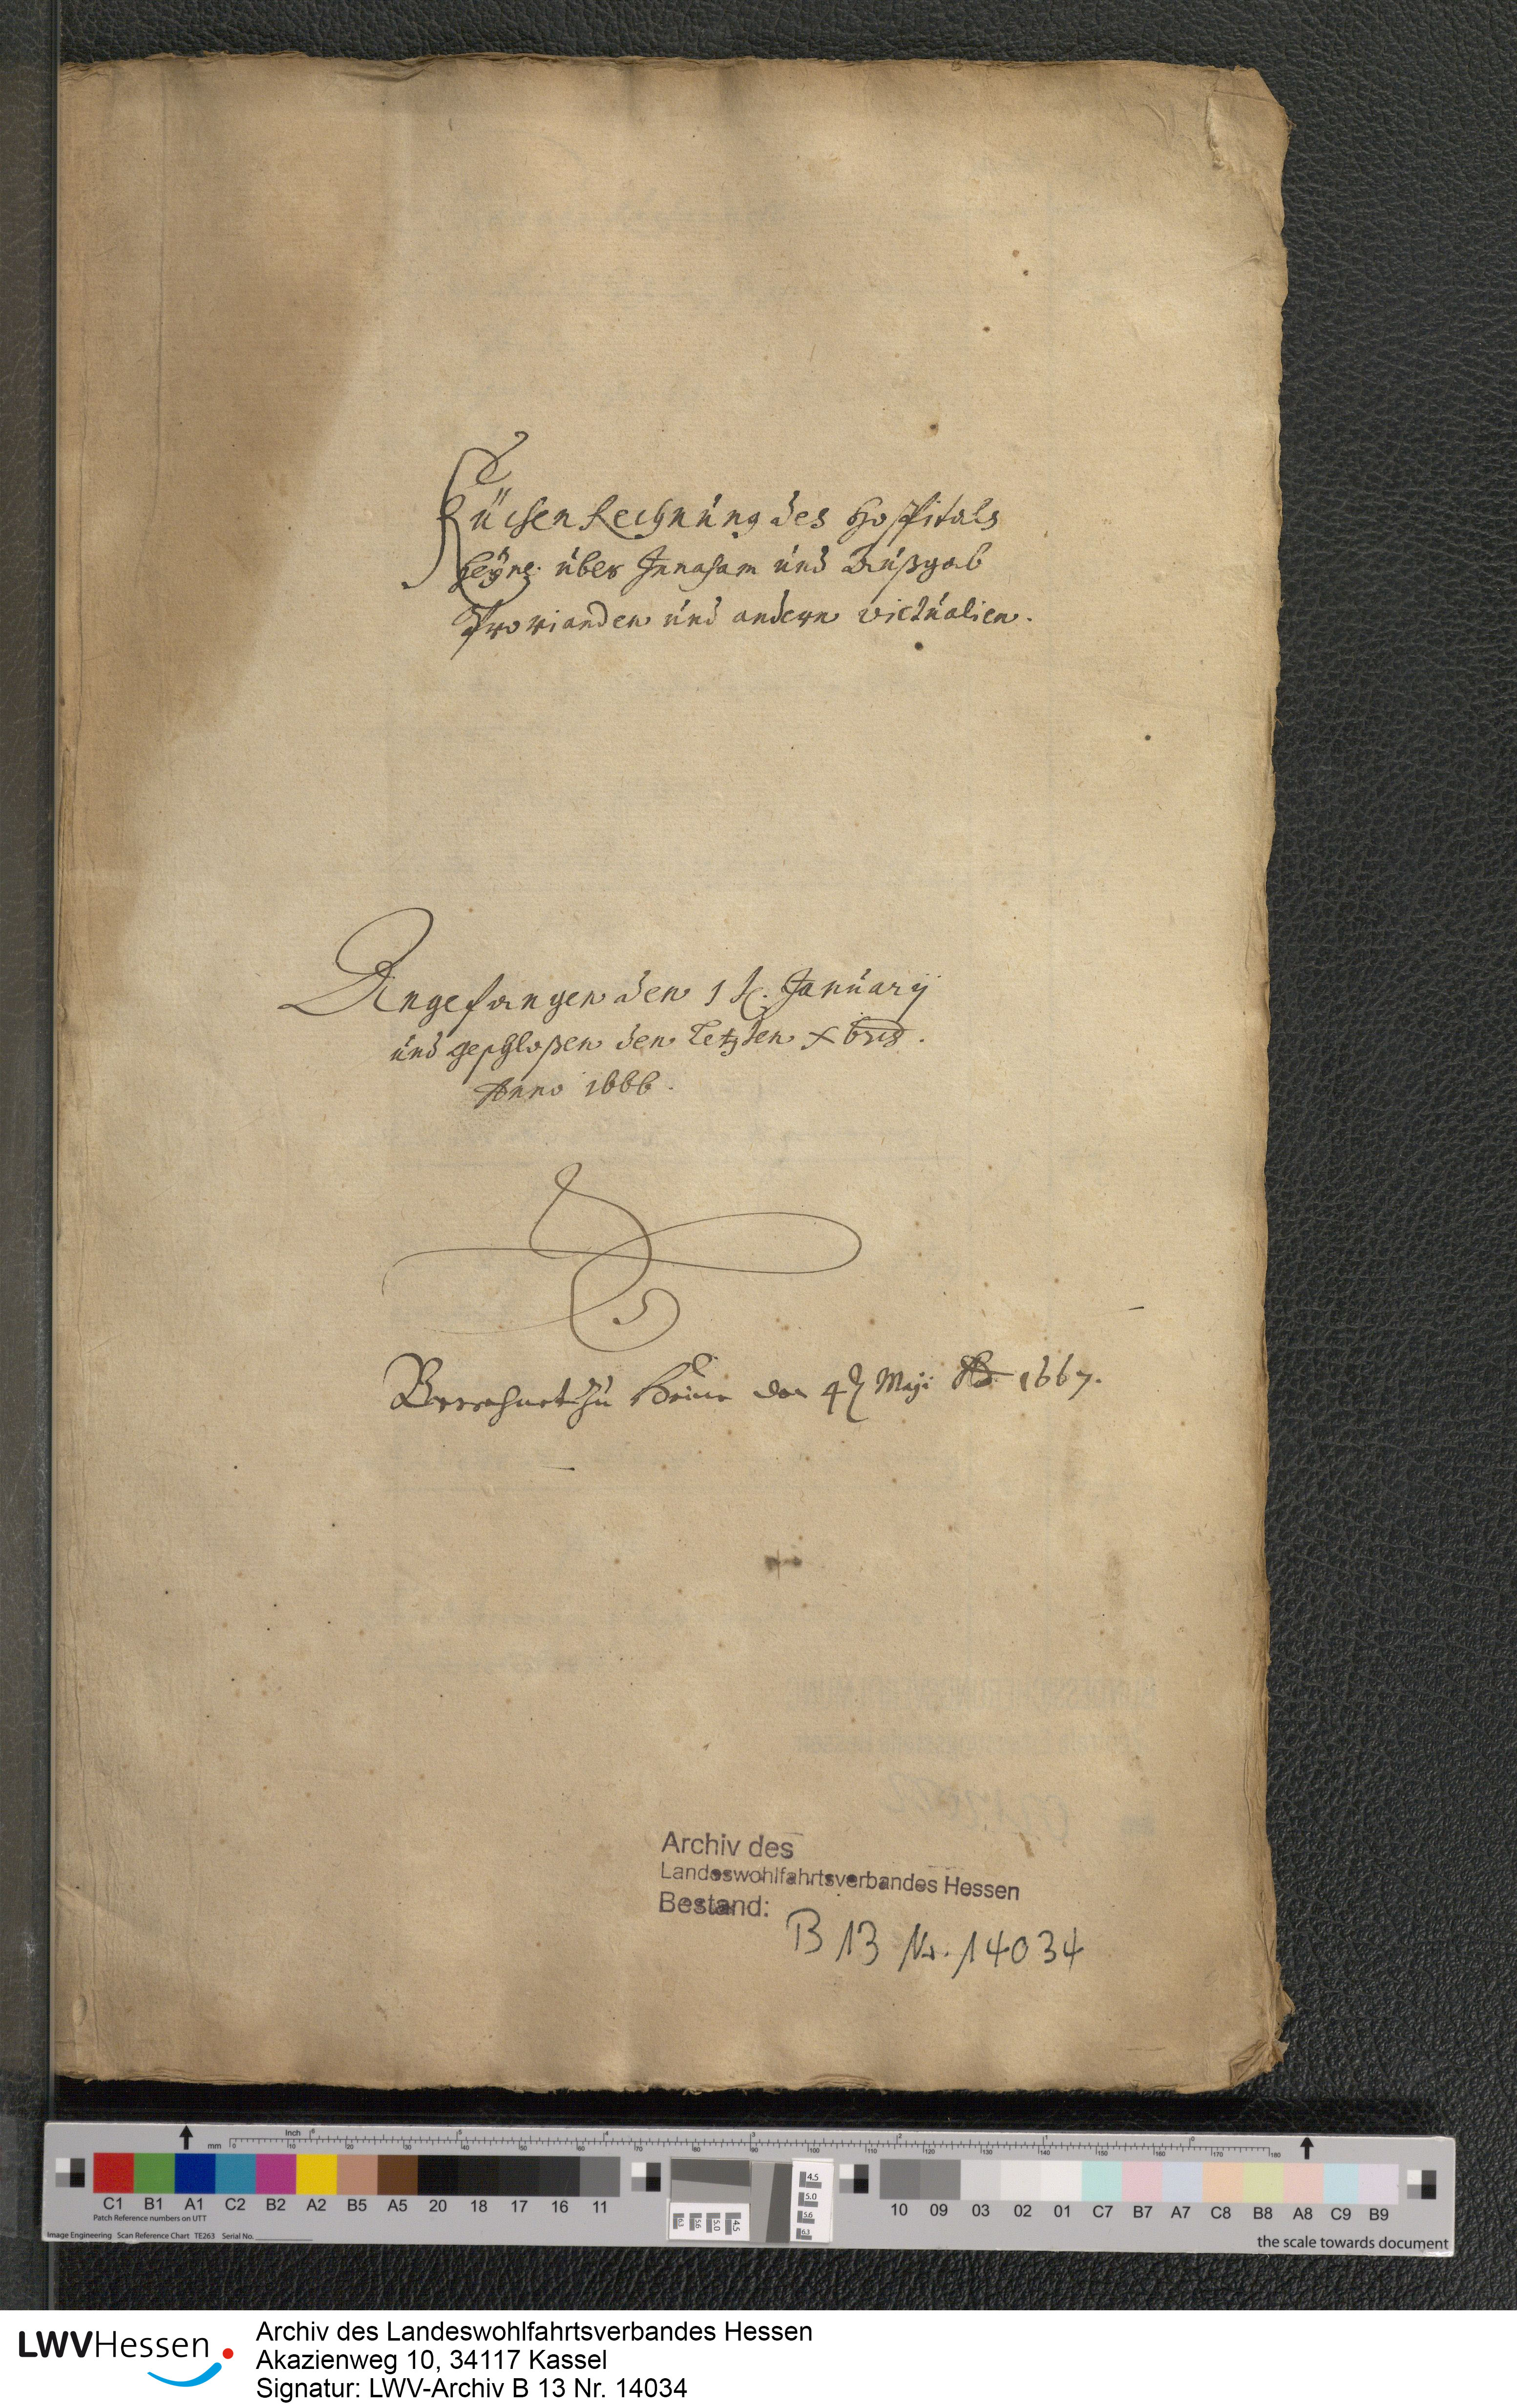 Küchen Rechnüng des Hospitals
Heÿne. über Innaham und Außgab
Provianden und andern victualien.
Angefangen den 1t. Januarÿ
und geschloßen den letzten xbris.
Anno 1666.
Berechnet zu Heine den 4t Maji Ao. 1667.
Archiv des
Landeswohlfahrtsverbandes Hessen
Bestand:
B 13 Nr. 14034
mm
Inch
C1 B1 A1 C2 B2 A2 B5 A5 20 18 17 16 11
10 09 03 02 01 C7 B7 A7 C8 B8 A8 C9 B9
Patch Reference numbers on UTT
Image Engineering Scan Reference Chart TE263 Serial No.
the scale towards document
LWVHessen
Archiv des Landeswohlfahrtsverbandes Hessen
Akazienweg 10, 34117 Kassel
Signatur: LWV-Archiv B 13 Nr. 14034